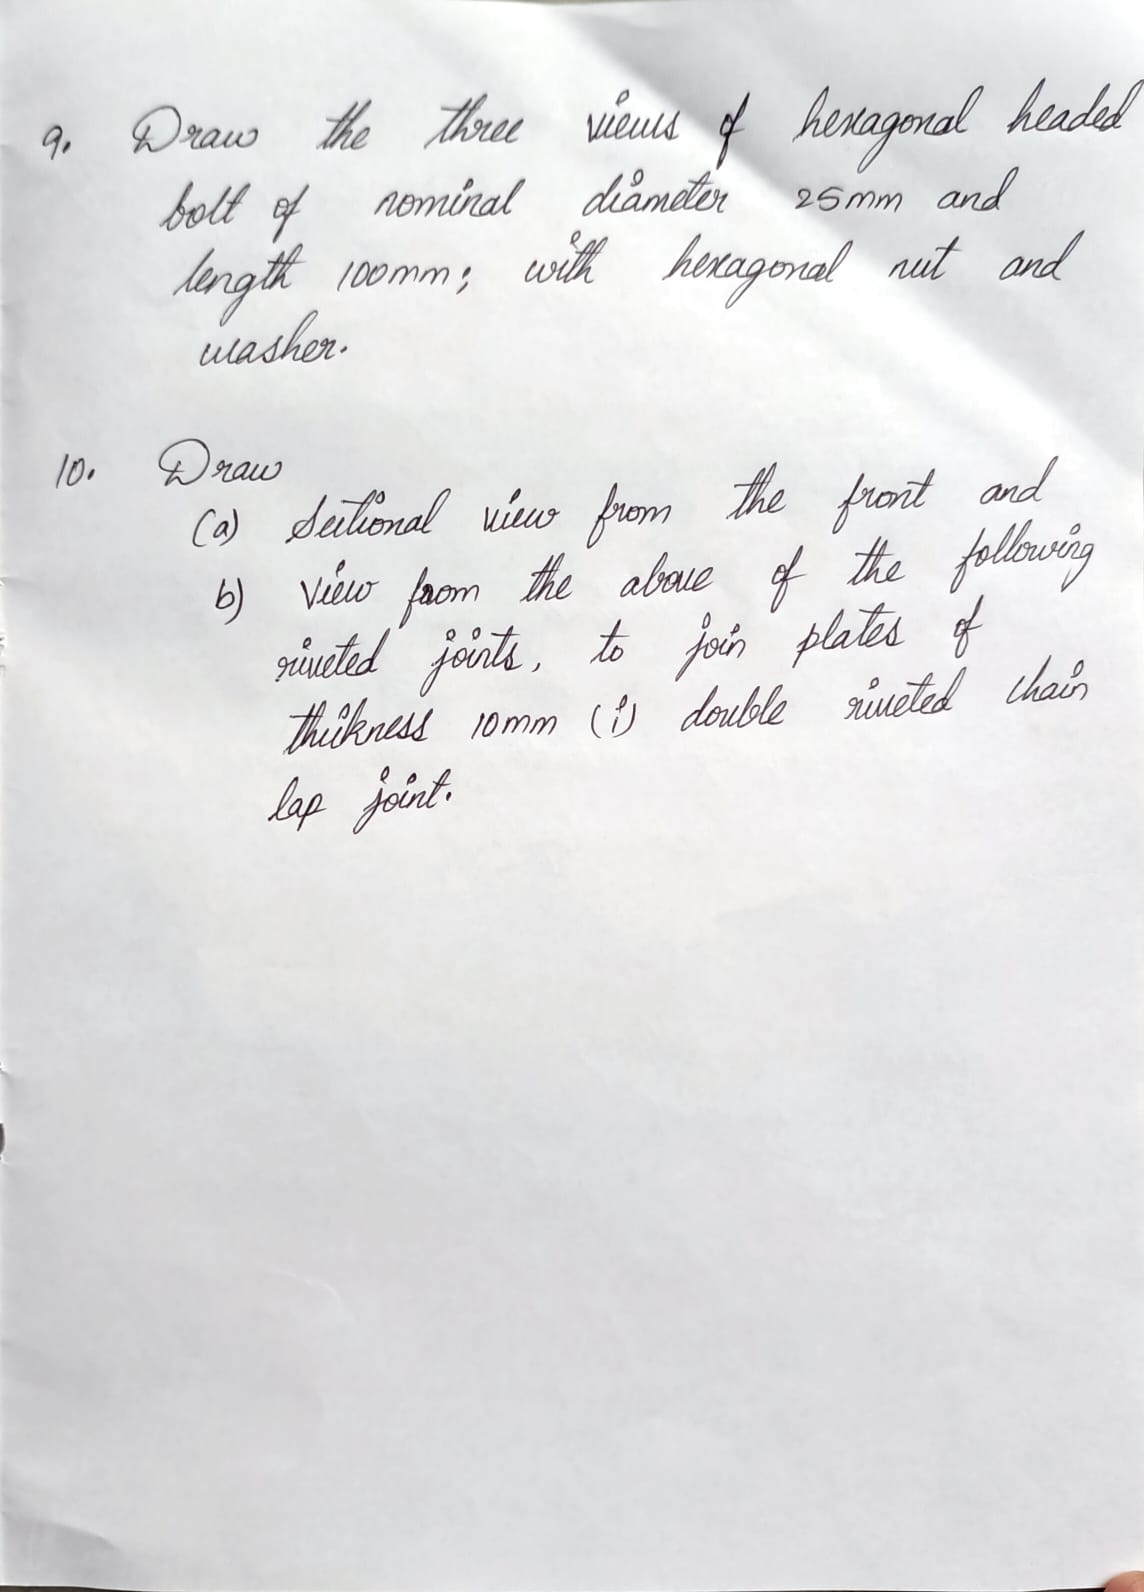 9. Draw the three views of hexagonal headed
bolt of nominal diameter 25mm and
length 100mm; with hexagonal nut and
washer.
10. Draw
(a) Sectional view from the front and
b) View from the above of the following
riveted joints, to join plates of
thickness 10mm (i) double riveted chain
lap joint.